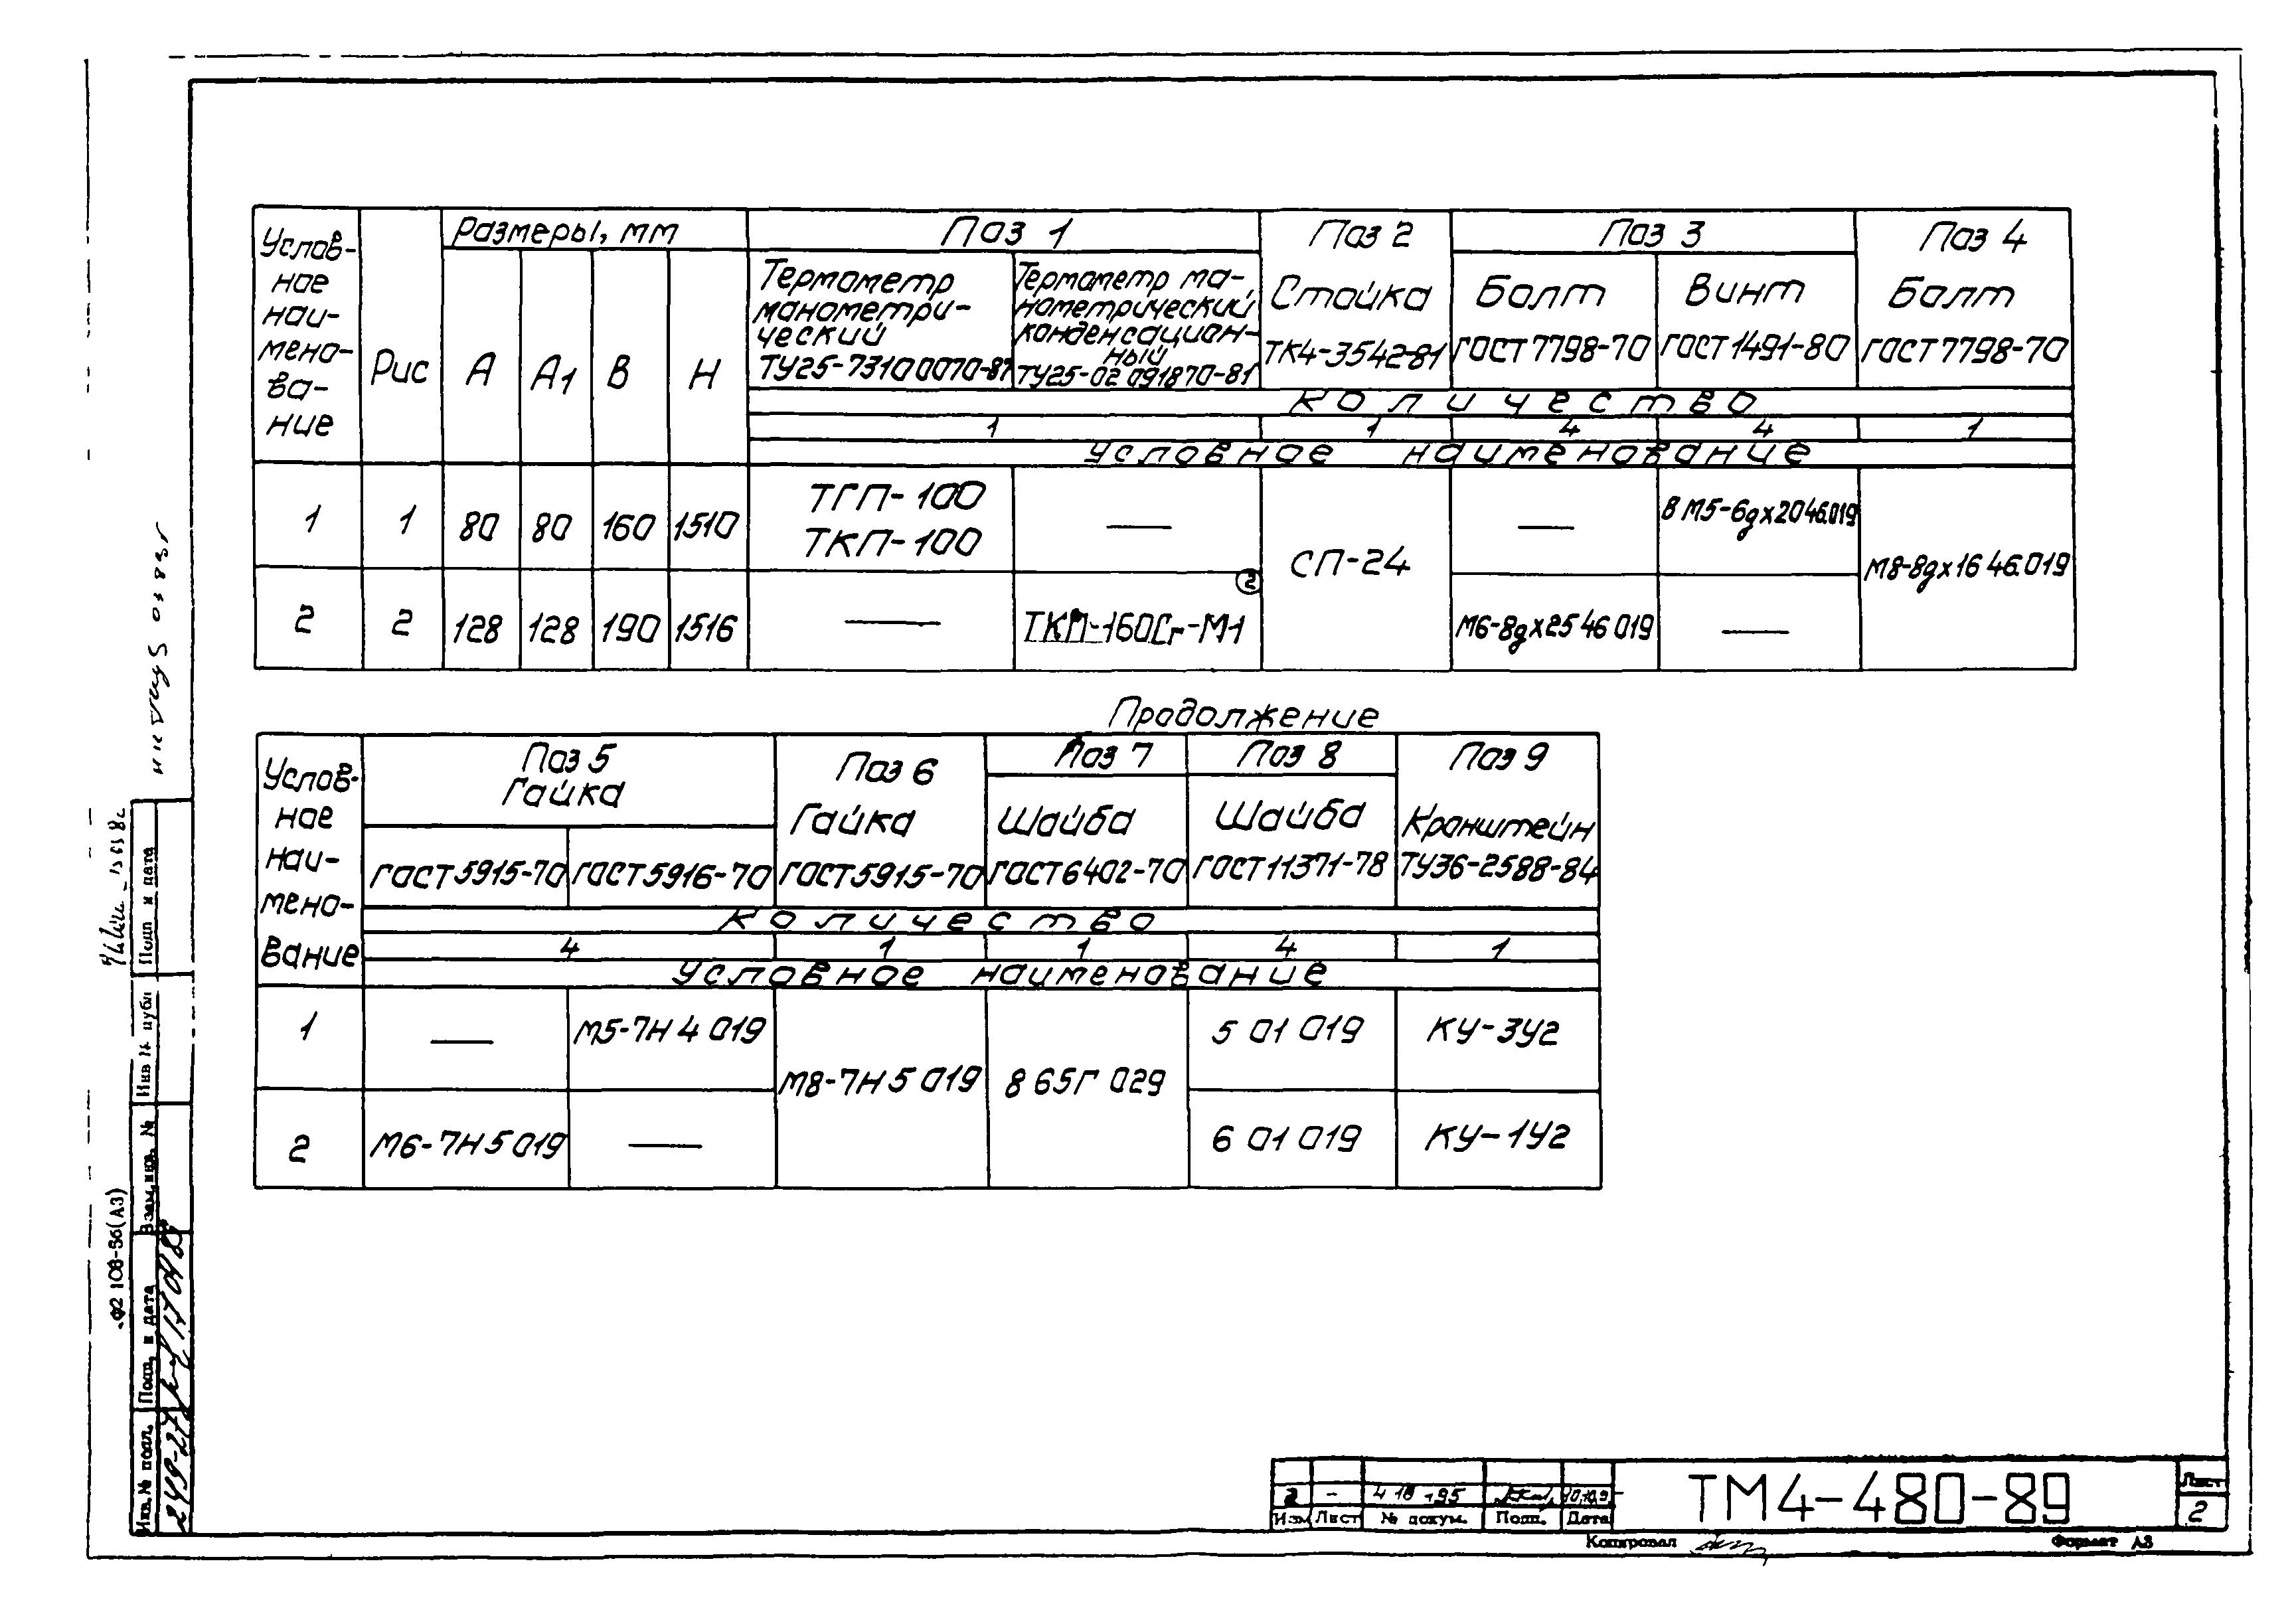 Услов-
ное
наи-
мено-
ва-
ние
Рис
Размеры, мм
А
А1
В
Н
Поз 1
Термометр
манометри-
ческий
ТУ25-73100070-87
Термометр ма-
нометрический
конденсацион-
ный
ТУ25-02 091870-81
Поз 2
Стойка
ТК4-3542-81
Поз 3
Болт
ГОСТ 7798-70
Винт
ГОСТ 1491-80
Поз 4
Болт
ГОСТ 7798-70
Количество
1 1 4 4 1
Условное наименование
1 1 80 80 160 1510
ТГП-100
ТКП-100
—
СП-24
—
В М5-6gх20 46.019
М8-8gх16 46.019
2 2 128 128 190 1516
—
2
ТКП-160Сг-М1
М6-8gх25 46 019
—
Продолжение
Услов-
ное
наи-
мено-
вание
Поз 5
Гайка
ГОСТ 5915-70
ГОСТ 5916-70
Поз 6
Гайка
ГОСТ 5915-70
Поз 7
Шайба
ГОСТ 6402-70
Поз 8
Шайба
ГОСТ 11371-78
Поз 9
Кронштейн
ТУ36-2588-84
Количество
4 1 1 4 1
Условное наименование
1 — М5-7Н 4 019
М8-7Н 5 019
8 65Г 029
5 01 019
КУ-3У2
2 М6-7Н 5 019 —
6 01 019
КУ-1У2
Подп и дата
Инв № дубл
Взам. инв. №
Подп. и дата
Инв. № подл.
Ф2 108-86(А3)
2 - 4 18 -95
Изм Лист № докум. Подп. Дата
ТМ4-480-89
Лист
2
Копировал
Формат А3